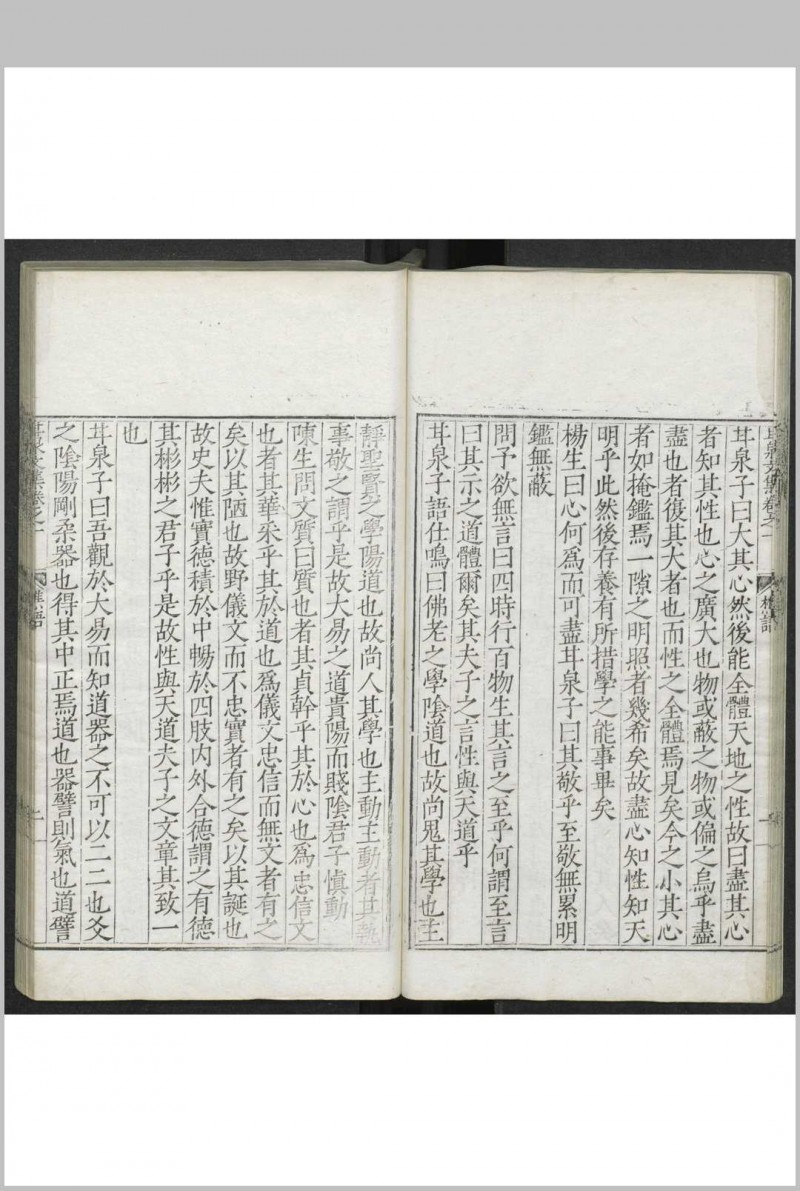 甘泉文集卷之一 樵語 一
甘泉子曰大其心然後能全體天地之性故曰盡其心
者知其性也心之廣大也物或蔽之物或偏之烏乎盡
盡也者復其大者也而性之全體焉見矣今之小其心
者如掩鑑焉一隙之明照者幾希矣故盡心知性知天
明乎此然後存養有所措學之能事畢矣
楊生曰心何爲而可盡甘泉子曰其敬乎至敬無累明
鑑無蔽
問予欲無言曰四時行百物生其言之至乎何謂至言
曰其示之道體爾矣其夫子之言性與天道乎
甘泉子語仕鳴曰佛老之學陰道也故尚鬼其學也主
靜聖賢之學陽道也故尚人其學也主動主動者其執
事敬之謂乎是故大易之道貴陽而賤陰君子慎動
陳生問文質曰質也者其貞幹乎其於心也爲忠信文
也者其華釆乎其於道也爲儀文忠信而無文者有之
矣以其陋也故野儀文而不忠實者有之矣以其誕也
故史夫惟實德積於中暢於四肢内外合德謂之有德
其彬彬之君子乎是故性與天道夫子之文章其致一
也
甘泉子曰吾觀於大易而知道器之不可以二二也爻
之陰陽剛柔器也得其中正焉道也器譬則氣也道譬
甘泉文集卷之一 樵語